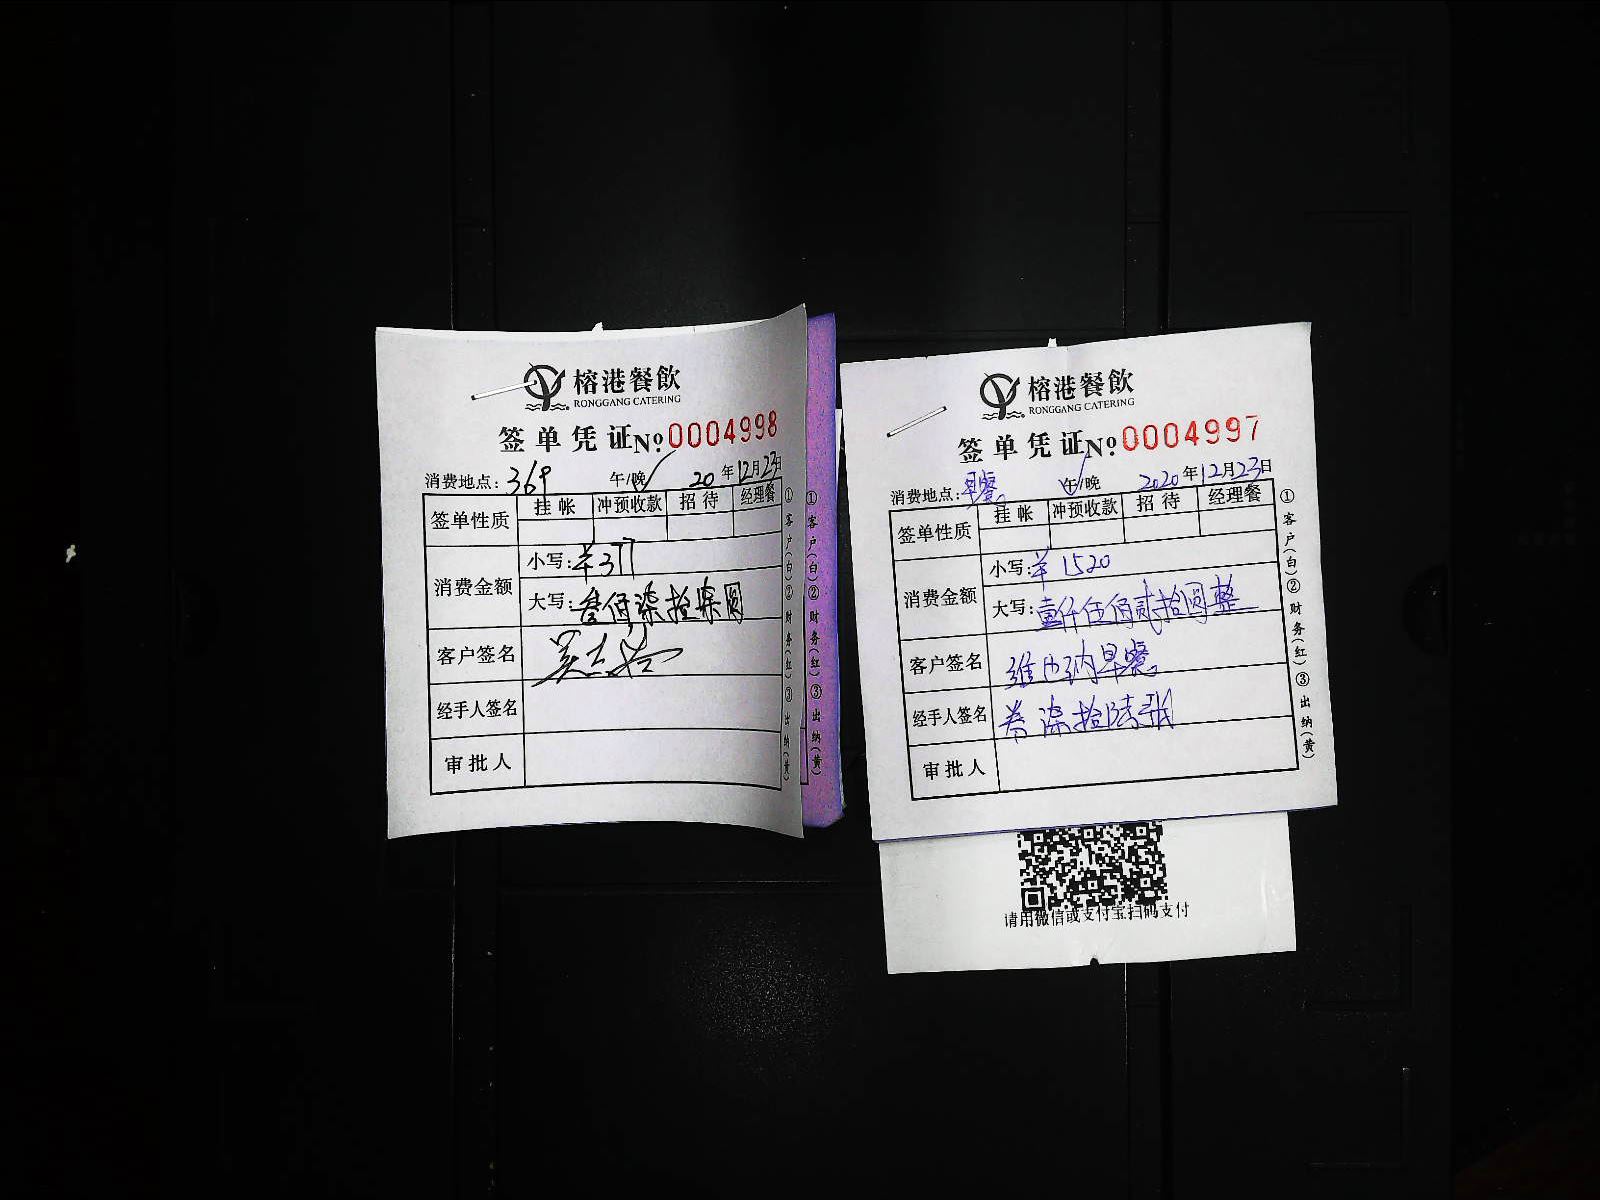 榕港餐飲
RONGGANG CATERING
签单凭证 No 0004998
消费地点: 369 午/晚 20 年 12月23日
签单性质 挂帐 冲预收款 招待 经理餐
消费金额
小写: ¥377
大写: 叁佰柒拾柒圆
客户签名
经手人签名
审批人
①客户(白)②财务(红)③出纳(黄)
①客户(白)②财务(红)③出纳(黄)
榕港餐飲
RONGGANG CATERING
签单凭证 No 0004997
消费地点: 早餐 午/晚 2020年12月23日
签单性质 挂帐 冲预收款 招待 经理餐
消费金额
小写: ¥1520
大写: 壹仟伍佰贰拾圆整
客户签名 维也纳早餐
经手人签名 券柒拾陆张
审批人
①客户(白)②财务(红)③出纳(黄)
请用微信或支付宝扫码支付